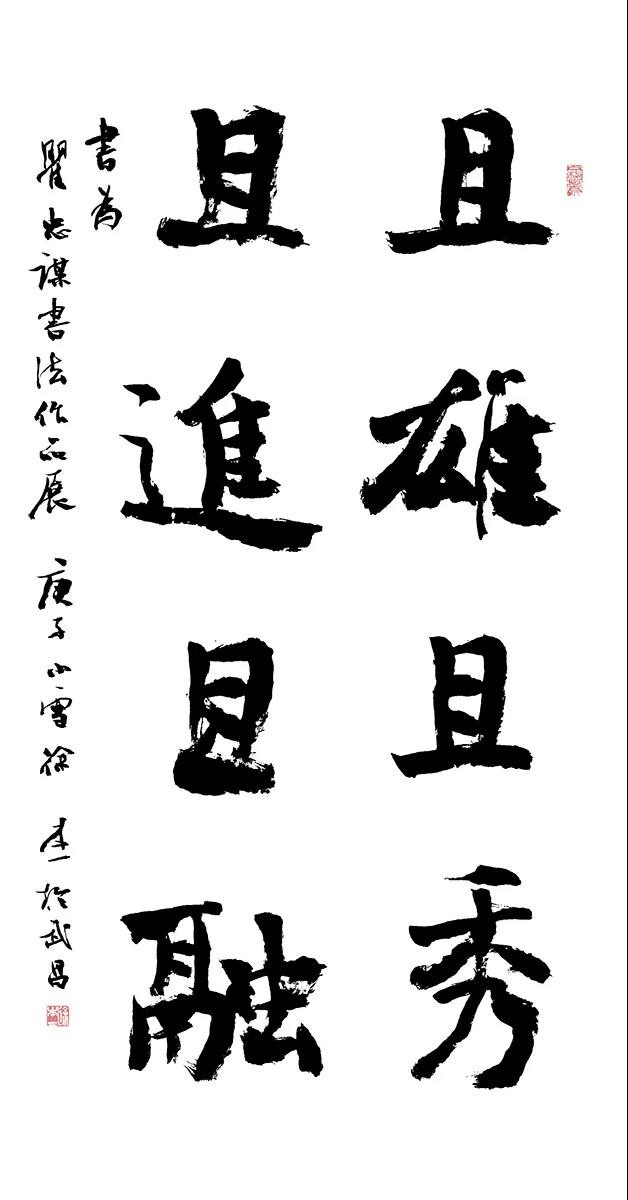 且雄且秀
且進且融
書為
瞿忠謀書法作品展 庚子小雪 徐本一於武昌